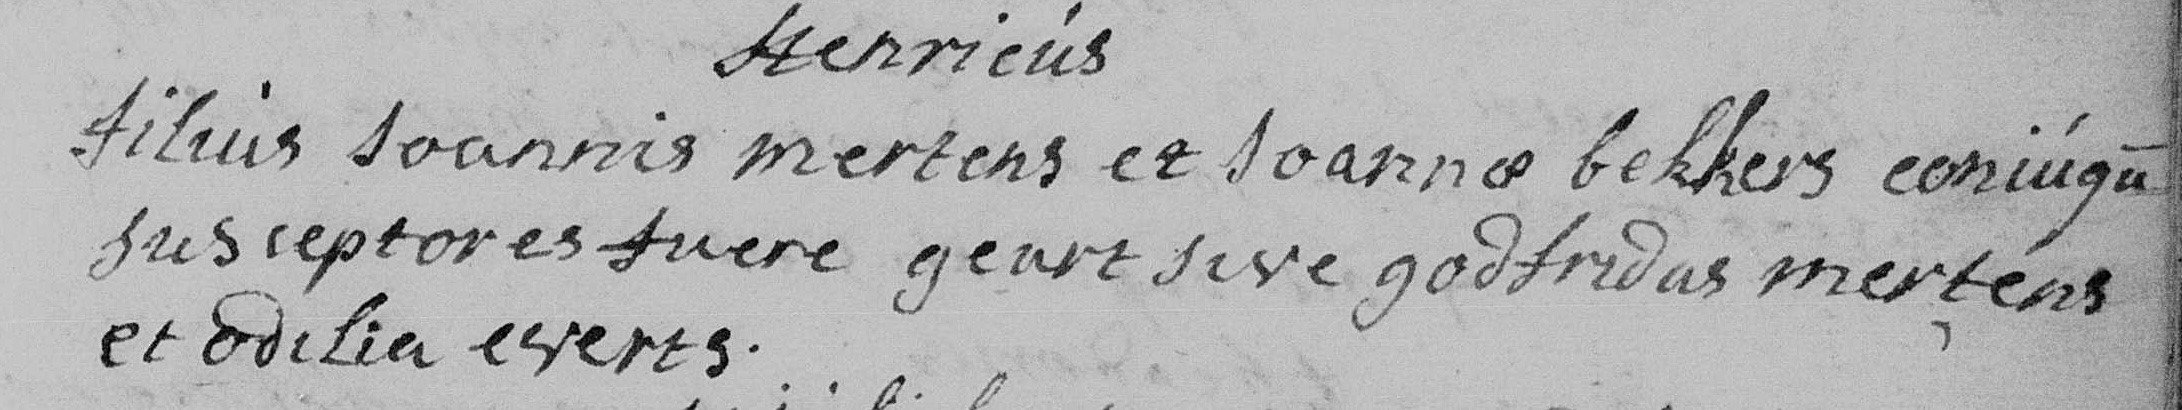 Henricús
filius Joannis mertens et Joannæ bekkers coniúgū
susceptores fuere geurt sive godfridus mertens
et odilia everts.